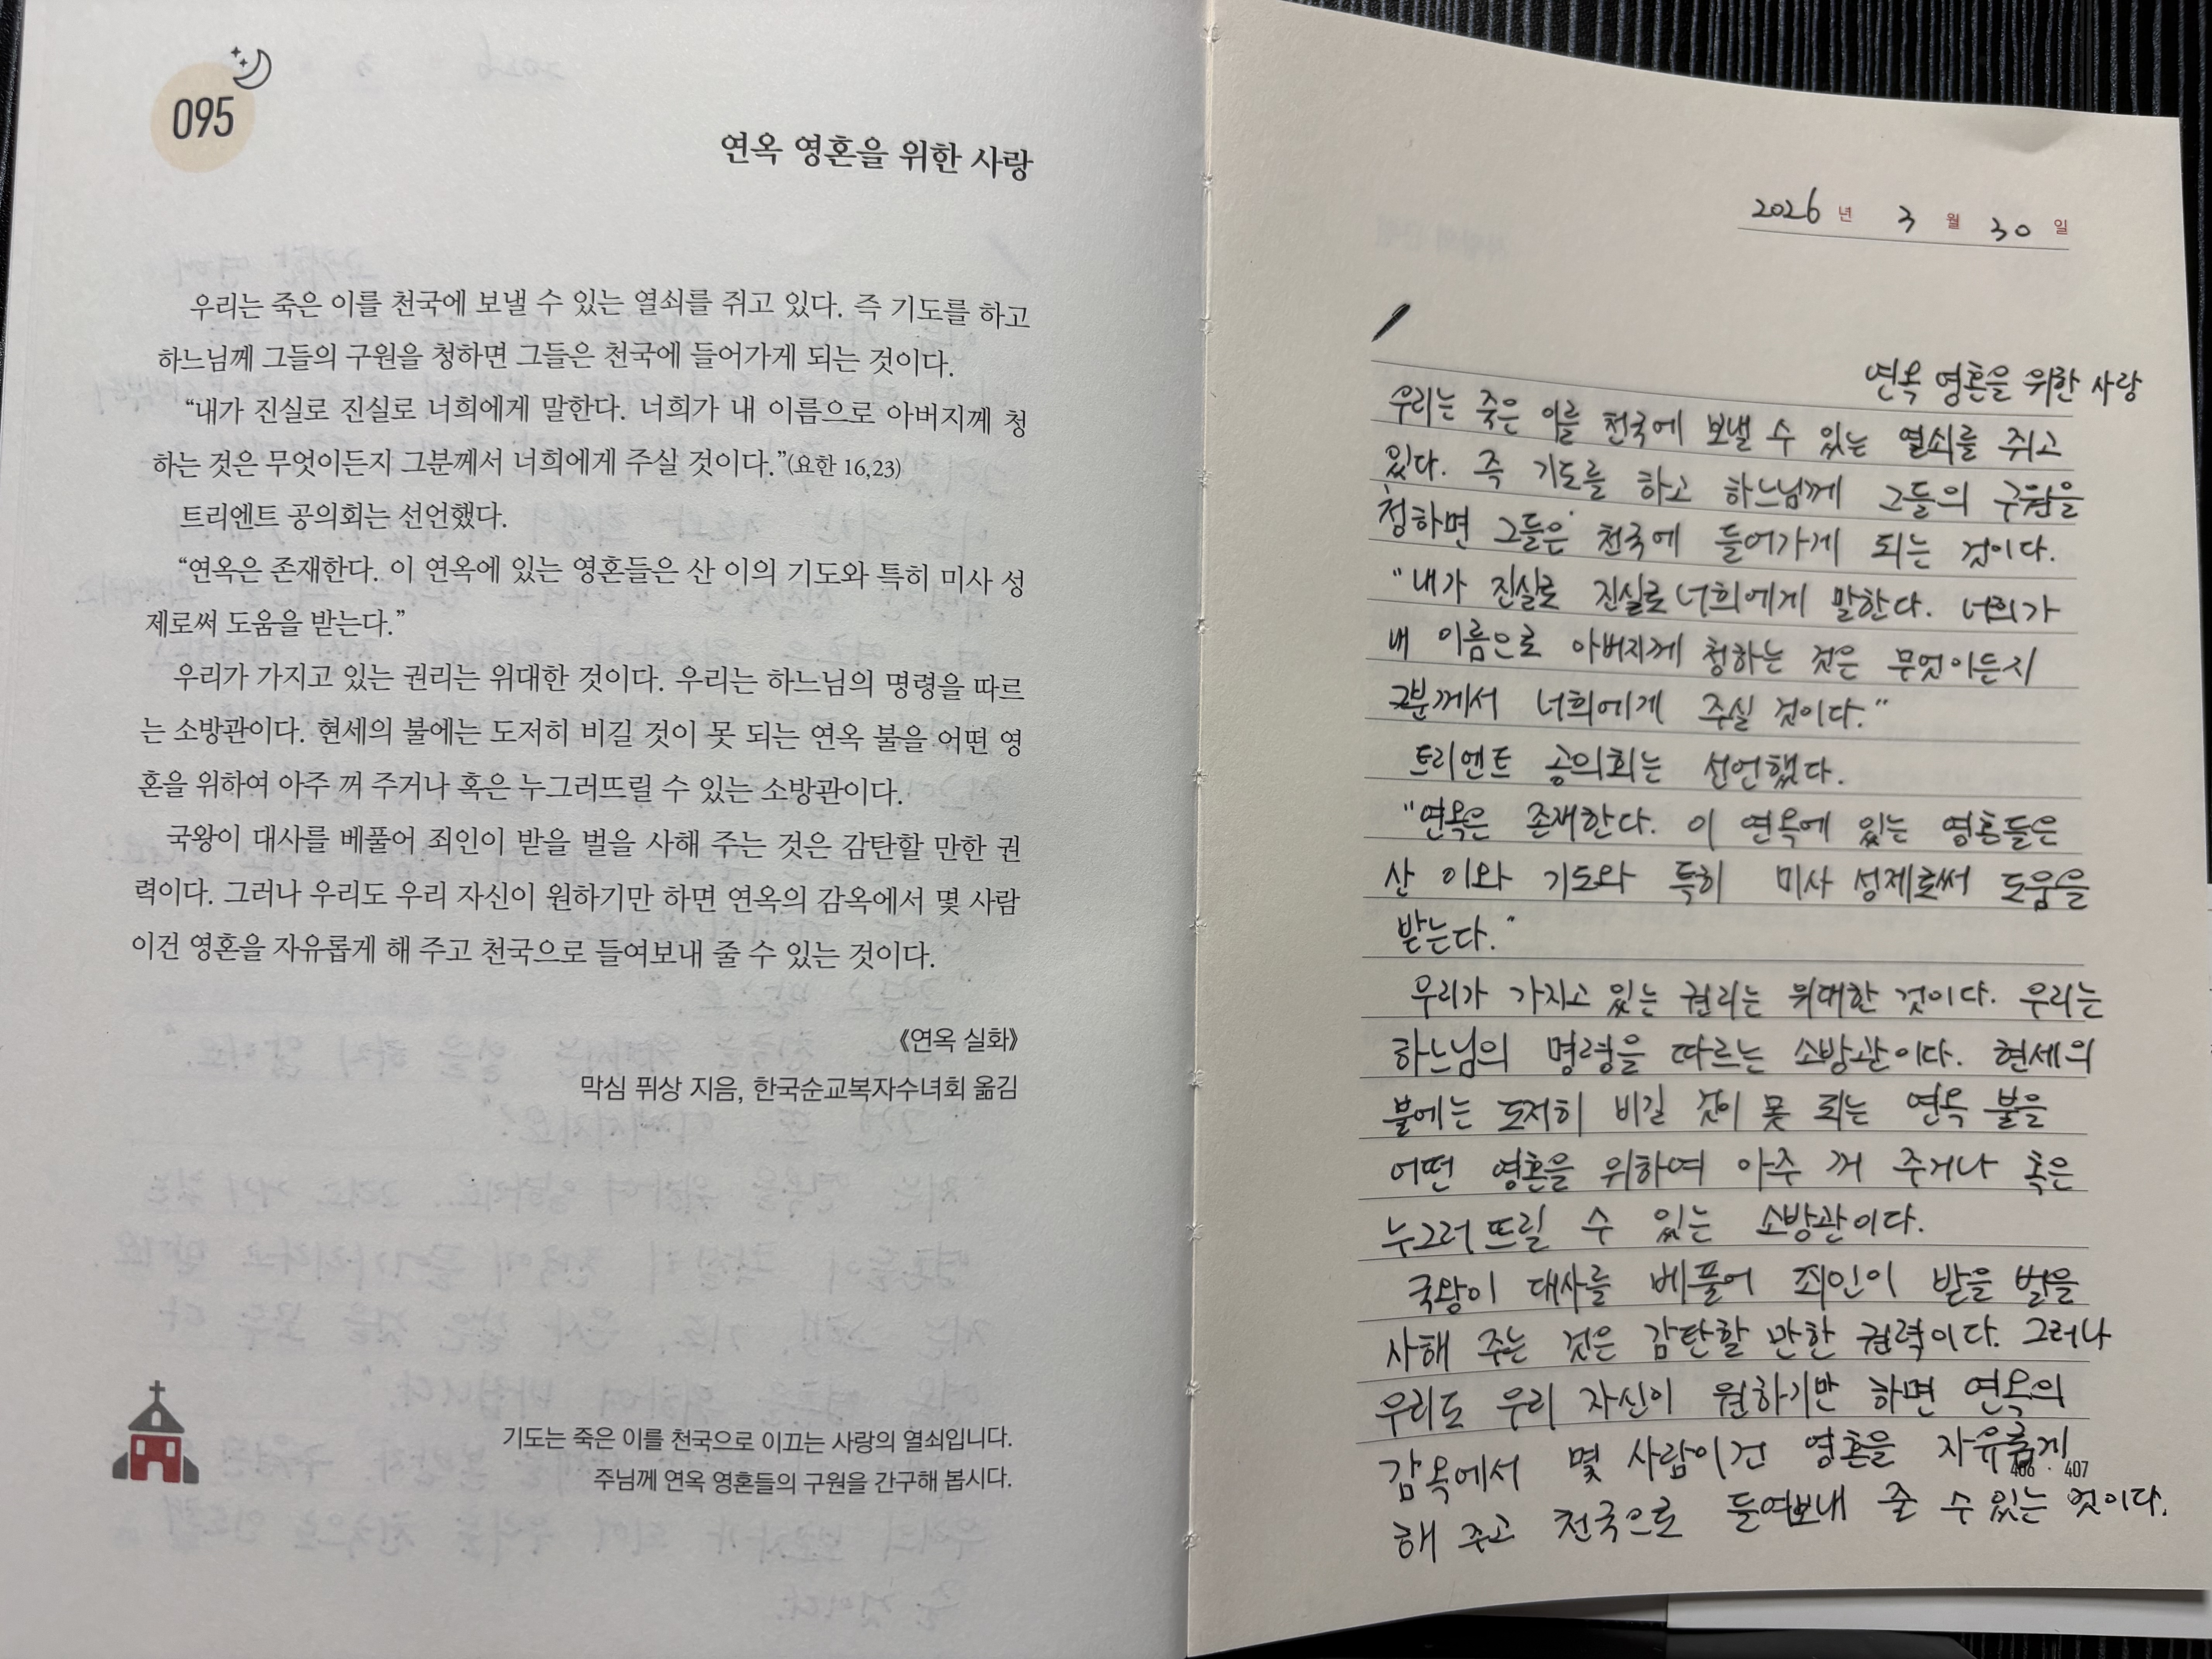 095
연옥 영혼을 위한 사랑
우리는 죽은 이를 천국에 보낼 수 있는 열쇠를 쥐고 있다. 즉 기도를 하고
하느님께 그들의 구원을 청하면 그들은 천국에 들어가게 되는 것이다.
“내가 진실로 진실로 너희에게 말한다. 너희가 내 이름으로 아버지께 청
하는 것은 무엇이든지 그분께서 너희에게 주실 것이다.”(요한 16,23)
트리엔트 공의회는 선언했다.
“연옥은 존재한다. 이 연옥에 있는 영혼들은 산 이의 기도와 특히 미사 성
제로써 도움을 받는다.”
우리가 가지고 있는 권리는 위대한 것이다. 우리는 하느님의 명령을 따르
는 소방관이다. 현세의 불에는 도저히 비길 것이 못 되는 연옥 불을 어떤 영
혼을 위하여 아주 꺼 주거나 혹은 누그러뜨릴 수 있는 소방관이다.
국왕이 대사를 베풀어 죄인이 받을 벌을 사해 주는 것은 감탄할 만한 권
력이다. 그러나 우리도 우리 자신이 원하기만 하면 연옥의 감옥에서 몇 사람
이건 영혼을 자유롭게 해 주고 천국으로 들여보내 줄 수 있는 것이다.
《연옥 실화》
막심 퓌상 지음, 한국순교복자수녀회 옮김
기도는 죽은 이를 천국으로 이끄는 사랑의 열쇠입니다.
주님께 연옥 영혼들의 구원을 간구해 봅시다.
2026 년 3 월 30 일
연옥 영혼을 위한 사랑
우리는 죽은 이를 천국에 보낼 수 있는 열쇠를 쥐고
있다. 즉 기도를 하고 하느님께 그들의 구원을
청하면 그들은 천국에 들어가게 되는 것이다.
"내가 진실로 진실로 너희에게 말한다. 너희가
내 이름으로 아버지께 청하는 것은 무엇이든지
그분께서 너희에게 주실 것이다."
트리엔트 공의회는 선언했다.
"연옥은 존재한다. 이 연옥에 있는 영혼들은
산 이와 기도와 특히 미사 성제로써 도움을
받는다."
우리가 가지고 있는 권리는 위대한 것이다. 우리는
하느님의 명령을 따르는 소방관이다. 현세의
불에는 도저히 비길 것이 못 되는 연옥 불을
어떤 영혼을 위하여 아주 꺼 주거나 혹은
누그러뜨릴 수 있는 소방관이다.
국왕이 대사를 베풀어 죄인이 받을 벌을
사해 주는 것은 감탄할 만한 권력이다. 그러나
우리도 우리 자신이 원하기만 하면 연옥의
감옥에서 몇 사람이건 영혼을 자유롭게
406 · 407
해 주고 천국으로 들여보내 줄 수 있는 것이다.